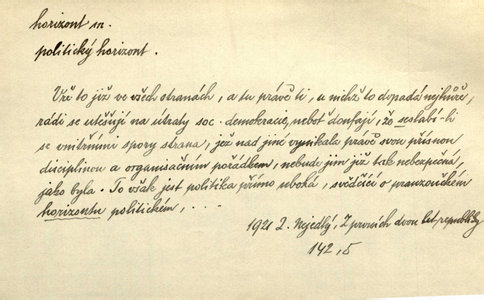 horizont m.
politický horizont.
Vře to již ve všech stranách, a tu právě ti, u nichž to dopadá nejhůře,
rádi se utěšují na útraty soc. demokracie, neboť doufají, že seslabí-li
se vnitřními spory strana, jež nad jiné vynikala právě svou přísnou
disciplinou a organisačním pořádkem, nebude jim již tak nebezpečná,
jako byla. To však jest politika přímo ubohá, svědčící o pranevelkém
horizontu politickém, . . .
1921 Z. Nejedlý, Z prvních dvou let republiky
142, 5